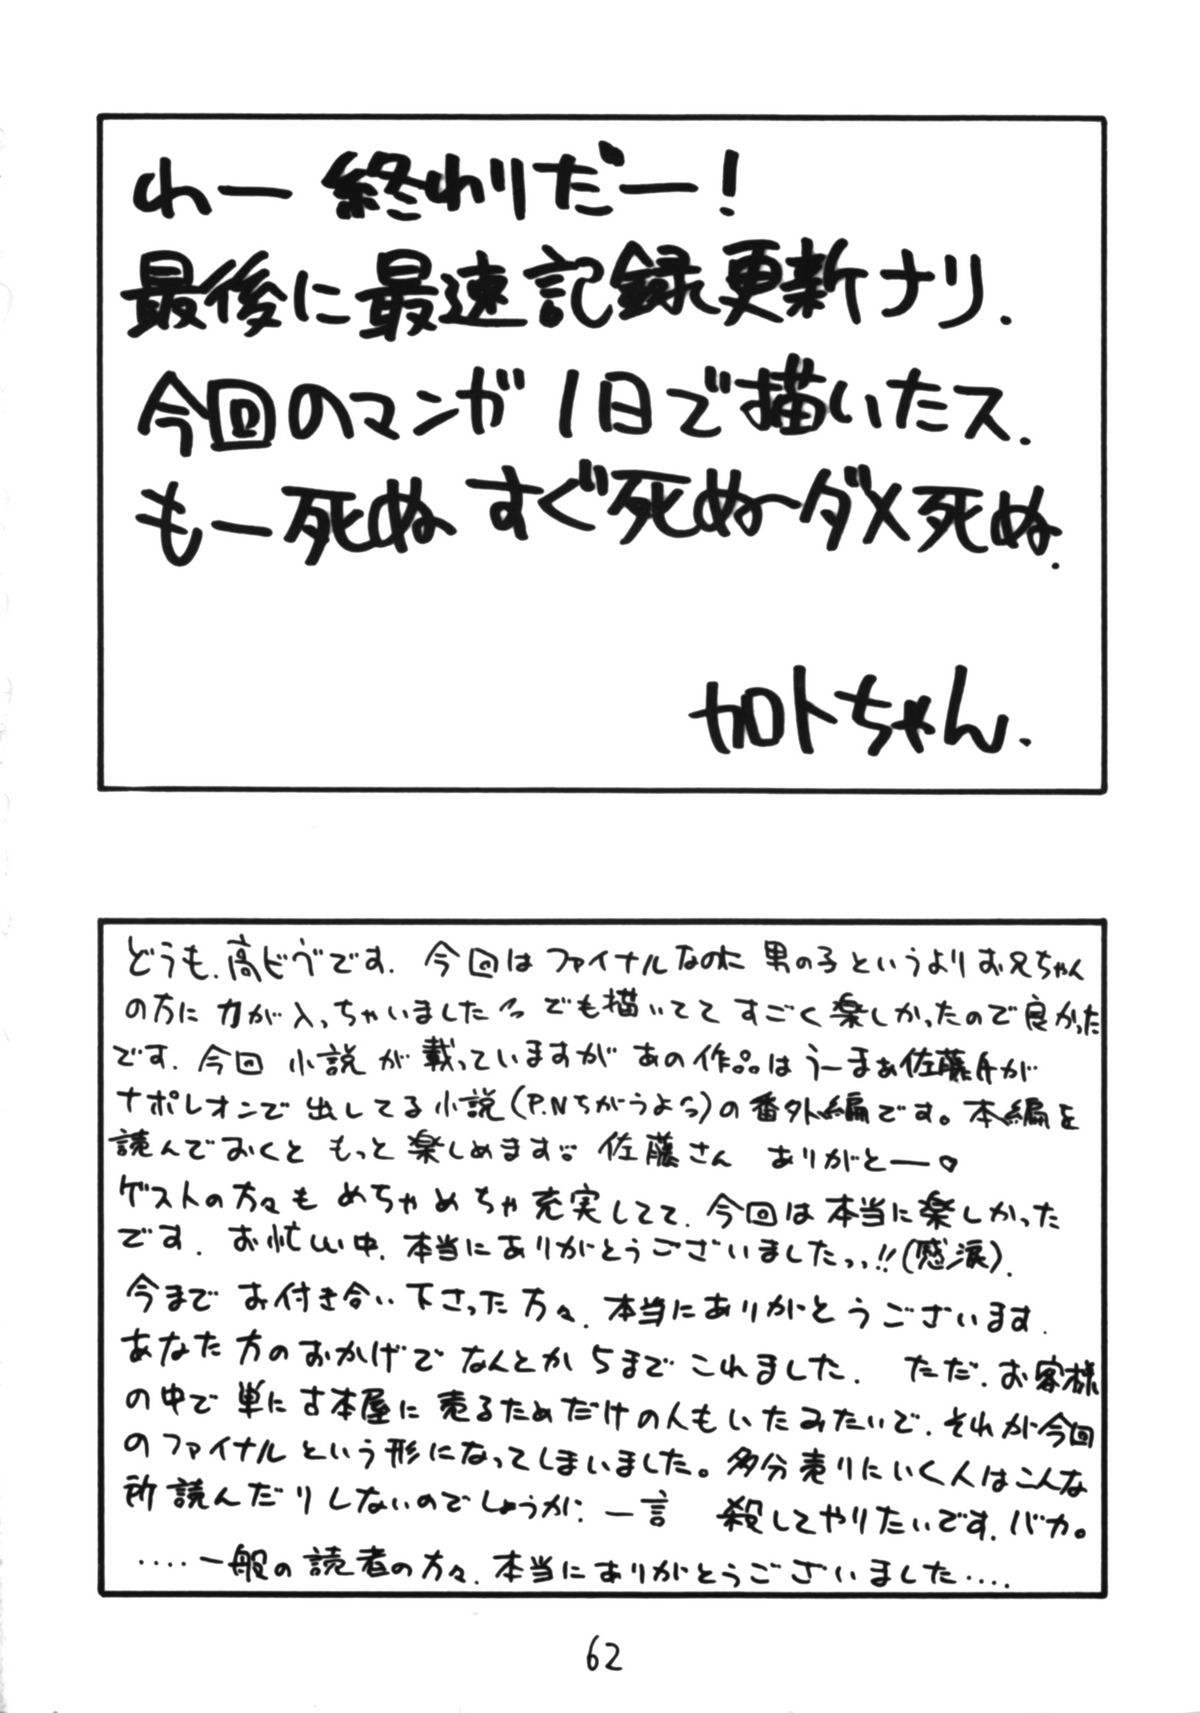 わー 終わりだー!
最後に最速記録更新ナリ.
今回のマンガ1日で描いたス.
もー死ぬ すぐ死ぬ〜ダメ死ぬ.
加ロトちゃん.
どうも.高ビヴです. 今回はファイナルなのに 男の子というよりお兄ちゃん
の方に力が入っちゃいました でも描いてて すごく楽しかったので良かった
です. 今回 小説が載っていますが あの作品はうーまぁ佐藤氏が
ナポレオンで出してる小説(P.Nちがうよ)の番外編です。本編を
読んでおくと もっと楽しめます 佐藤さん ありがとー
ゲストの方々も めちゃめちゃ充実してて. 今回は本当に楽しかった
です. お忙しい中. 本当にありがとうございましたっっ!!(感涙).
今まで お付き合い下さった方々. 本当にありがとうございます.
あなた方のおかげで なんとか5まで これました. ただ.お客様
の中で 単に古本屋に売るためだけの人もいたみたいで. それが今回
のファイナルという形になってしまいました。多分売りにいく人はこんな
所読んだりしないのでしょうが. 一言 殺してやりたいです.バカ。
....一般の読者の方々. 本当にありがとうございました....
62